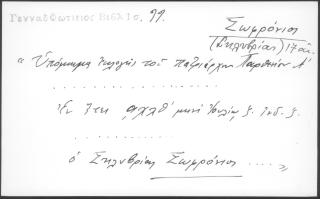 Γενναδ ωτιτιος Βιβλιο. 99.
Σωφρόνιος
(Σηλυβρίας) 17 αι.
« Ὑπόμνημα ἐκλογῆς τοῦ πατριάρχου Παρθενίου Α΄
. . . . . . . . . . . . . .
Ἐν ἔτει αχλθ΄ μηνὶ Ἰουλίῳ ζ. Ἰνδ. ζ.
. . . . . . . . . . .
ὁ Σηλυβρίας Σωφρόνιος ..... »